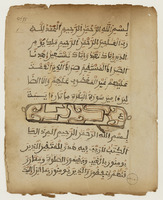 بسم الله الرحمن الرحيم الحمد لله
رب العلمين الرحمن الرحيم ملك يوم
الدين إياك نعبد وإياك نستعين اهدنا
الصراط المستقيم صراط الذين أنعمت
عليهم غير المغضوب عليهم ولا الضا
لين
بسم الله الرحمن الرحيم الم ذلك
الكتب لا ريب فيه هدى للمتقين الذين
يومنون بالغيب ويقيمون الصلوة ومما رز
قنهم ينفقون والذين يومنون بما أنزل إليك